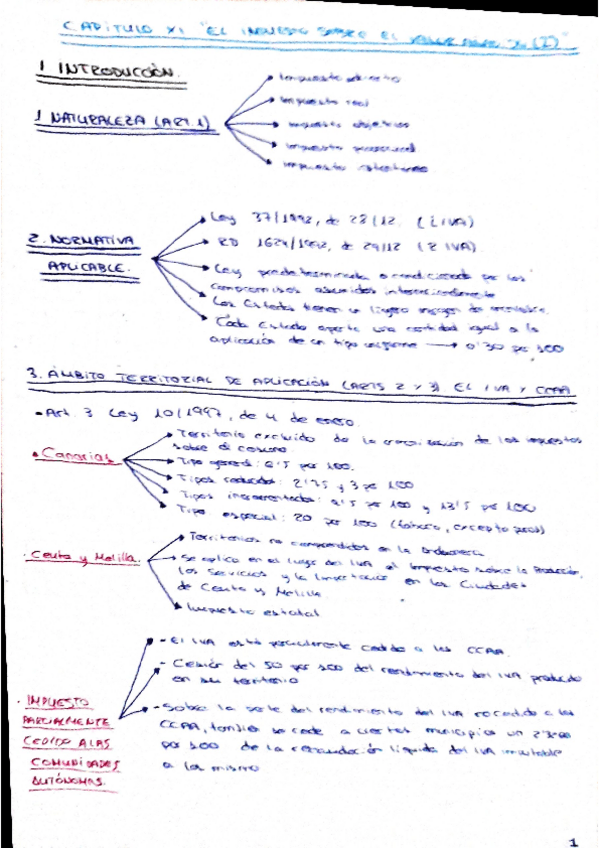 CAPÍTULO XI "EL IMPUESTO SOBRE EL VALOR (I)"
1 INTRODUCCIÓN.
Impuesto directo
Impuesto real
1 NATURALEZA (ART. 1)
Impuesto objetivo
Impuesto
Impuesto
Ley 37/1992, de 28/12. (LIVA)
2. NORMATIVA
RD 1624/1992, de 29/12 (RIVA)
APLICABLE.
Ley predeterminada o condicionada por los
compromisos asumidos internacionalmente
Los Estados tienen un ligero margen de
Cada Estado aporta una cantidad igual a la
aplicación de un tipo uniforme → 0'30 por 100
3. ÁMBITO TERRITORIAL DE APLICACIÓN (ARTS 2 Y 3) EL IVA Y CCAA
- Art. 3 Ley 10/1997, de 4 de enero.
Territorio excluido de la armonización de los impuestos
• Canarias
sobre el consumo
Tipo general: por 100.
Tipos reducidos: 2'75 y 3 por 100
Tipos incrementados: 9'5 por 100 y 13'5 por 100
Tipo especial: 20 por 100 (tabaco, excepto puros)
Territorios no comprendidos en la
• Ceuta y Melilla.
Se aplica en el lugar del IVA el Impuesto sobre la Producción,
los Servicios y la Importación en las Ciudades
de Ceuta y Melilla
Impuesto estatal
- El IVA está parcialmente cedido a las CCAA.
- Cesión del 50 por 100 del rendimiento del IVA producido
en su territorio
• IMPUESTO
- Sobre la parte del rendimiento del IVA no cedido a las
PARCIALMENTE
CCAA, también se cede a ciertos municipios un
CEDIDO A LAS
por 100 de la recaudación líquida del IVA imputable
COMUNIDADES
a los mismos
AUTÓNOMAS.
1